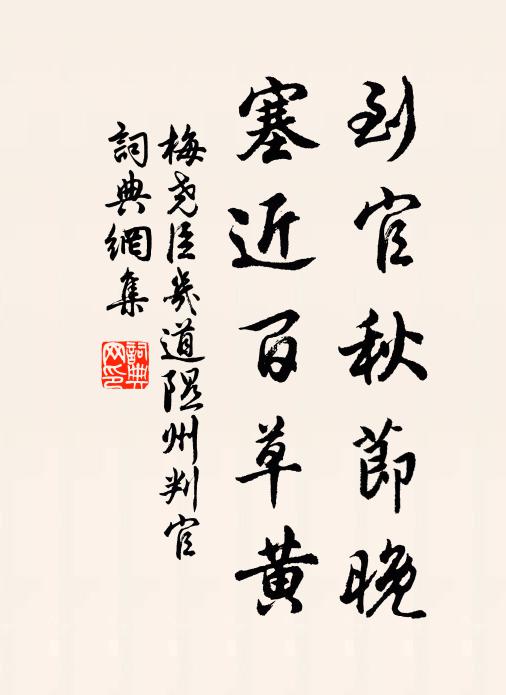 到官秋節晚
塞近百草黃
梅堯臣歲道隰州判官
詞典網集
詞典
网印